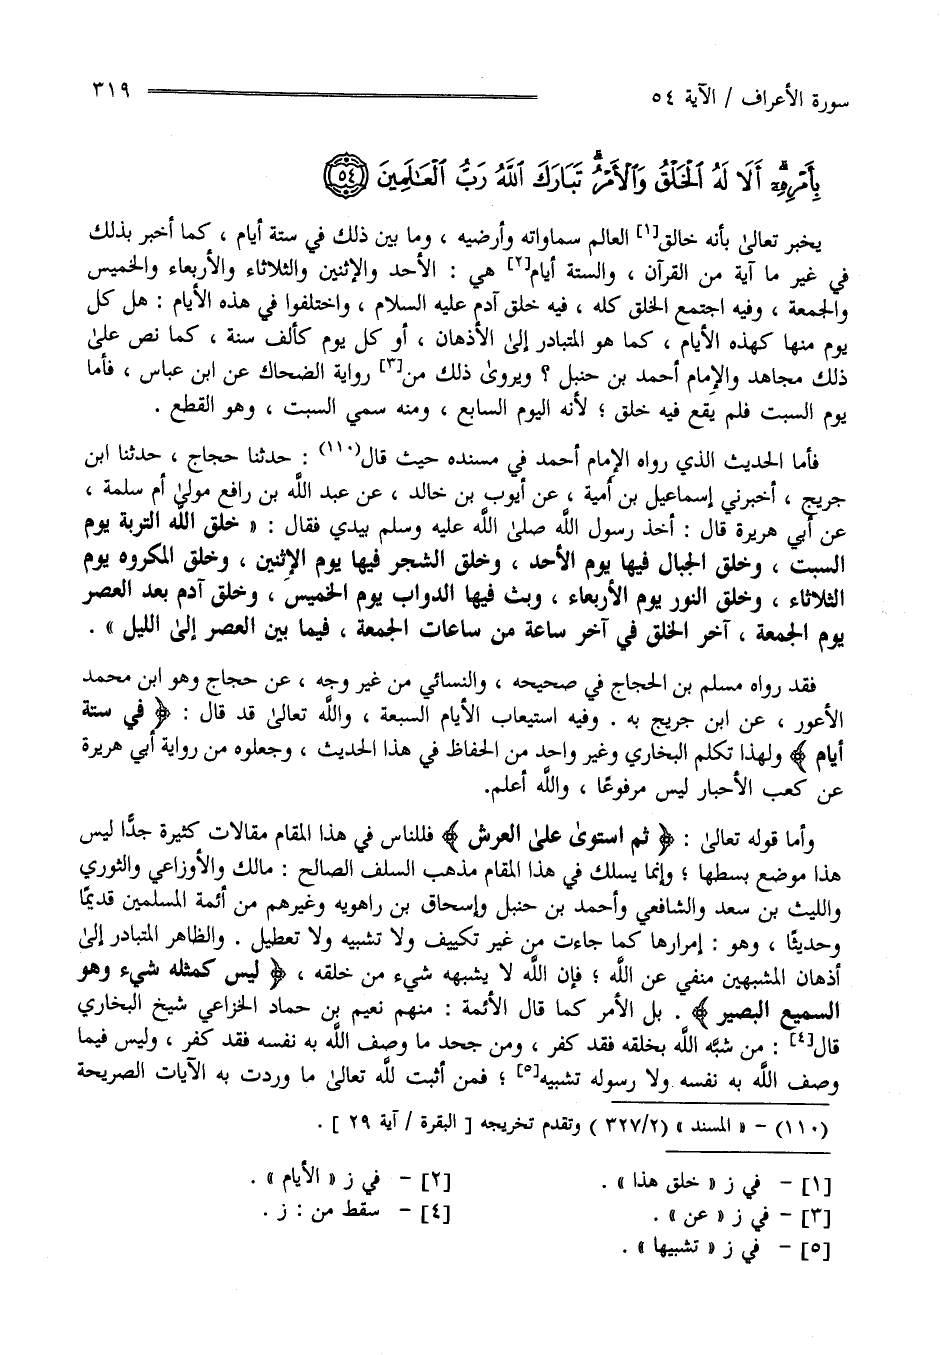 سورة الأعراف / الآية ٥٤ ٣١٩
بِأَمْرِهِۦٓ أَلَا لَهُ ٱلْخَلْقُ وَٱلْأَمْرُ تَبَارَكَ ٱللَّهُ رَبُّ ٱلْعَـٰلَمِينَ ٥٤
يخبر تعالىٰ بأنه خالق[١] العالم سماواته وأرضيه ، وما بين ذلك في ستة أيام ، كما أخبر بذلك
في غير ما آية من القرآن ، والستة أيام[٢] هي : الأحد والإثنين والثلاثاء والأربعاء والخميس
والجمعة ، وفيه اجتمع الخلق كله ، فيه خلق آدم عليه السلام ، واختلفوا في هذه الأيام : هل كل
يوم منها كهذه الأيام ، كما هو المتبادر إلىٰ الأذهان ، أو كل يوم كألف سنة ، كما نص علىٰ
ذلك مجاهد والإمام أحمد بن حنبل ؟ ويروىٰ ذلك من[٣] رواية الضحاك عن ابن عباس ، فأما
يوم السبت فلم يقع فيه خلق ؛ لأنه اليوم السابع ، ومنه سمي السبت ، وهو القطع .
فأما الحديث الذي رواه الإمام أحمد في مسنده حيث قال(١١٠) : حدثنا حجاج ، حدثنا ابن
جريج ، أخبرني إسماعيل بن أمية ، عن أيوب بن خالد ، عن عبد اللَّه بن رافع مولىٰ أم سلمة ،
عن أبي هريرة قال : أخذ رسول اللَّه صلىٰ اللَّه عليه وسلم بيدي فقال : « خلق اللَّه التربة يوم
السبت ، وخلق الجبال فيها يوم الأحد ، وخلق الشجر فيها يوم الإثنين ، وخلق المكروه يوم
الثلاثاء ، وخلق النور يوم الأربعاء ، وبث فيها الدواب يوم الخميس ، وخلق آدم بعد العصر
يوم الجمعة ، آخر الخلق في آخر ساعة من ساعات الجمعة ، فيما بين العصر إلىٰ الليل » .
فقد رواه مسلم بن الحجاج في صحيحه ، والنسائي من غير وجه ، عن حجاج وهو ابن محمد
الأعور ، عن ابن جريج به . وفيه استيعاب الأيام السبعة ، واللَّه تعالىٰ قد قال : ﴿ في ستة
أيام ﴾ ولهذا تكلم البخاري وغير واحد من الحفاظ في هذا الحديث ، وجعلوه من رواية أبي هريرة
عن كعب الأحبار ليس مرفوعًا ، واللَّه أعلم.
وأما قوله تعالىٰ : ﴿ ثم استوىٰ علىٰ العرش ﴾ فللناس في هذا المقام مقالات كثيرة جدًّا ليس
هذا موضع بسطها ؛ وإنما يسلك في هذا المقام مذهب السلف الصالح : مالك والأوزاعي والثوري
والليث بن سعد والشافعي وأحمد بن حنبل وإسحاق بن راهويه وغيرهم من أئمة المسلمين قديمًا
وحديثًا ، وهو : إمرارها كما جاءت من غير تكييف ولا تشبيه ولا تعطيل . والظاهر المتبادر إلىٰ
أذهان المشبهين منفي عن اللَّه ؛ فإن اللَّه لا يشبهه شيء من خلقه ، ﴿ ليس كمثله شيء وهو
السميع البصير ﴾ . بل الأمر كما قال الأئمة : منهم نعيم بن حماد الخزاعي شيخ البخاري
قال[٤] : من شبَّه اللَّه بخلقه فقد كفر ، ومن جحد ما وصف اللَّه به نفسه فقد كفر ، وليس فيما
وصف اللَّه به نفسه ولا رسوله تشبيه[٥] ؛ فمن أثبت للَّه تعالىٰ ما وردت به الآيات الصريحة
(١١٠) – « المسند » (٣٢٧/٢) وتقدم تخريجه [ البقرة / آية ٢٩ ] .
[١] – في ز « خلق هذا » . [٢] – في ز « الأيام » .
[٣] – في ز « عن » . [٤] – سقط من : ز .
[٥] – في ز « تشبيها » .